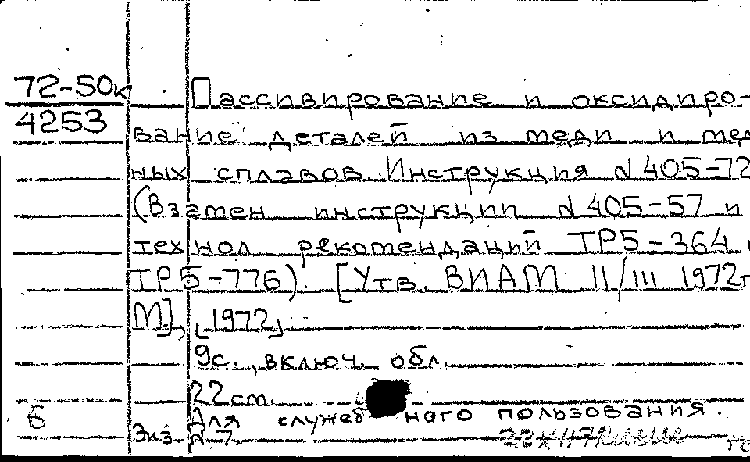 72-50к
4253
Пассивирование и оксидиро-
вание деталей из меди и мед
ных сплавов. Инструкция N 405-72
(Взамен инструкции N 405-57 и
технол рекомендаций ТР5-364 и
ТР5-776). [Утв. ВИАМ 11/III 1972г
М], [1972]
9с., включ. обл.
22 см.
Для служебного пользования.
б
Экз. N 7